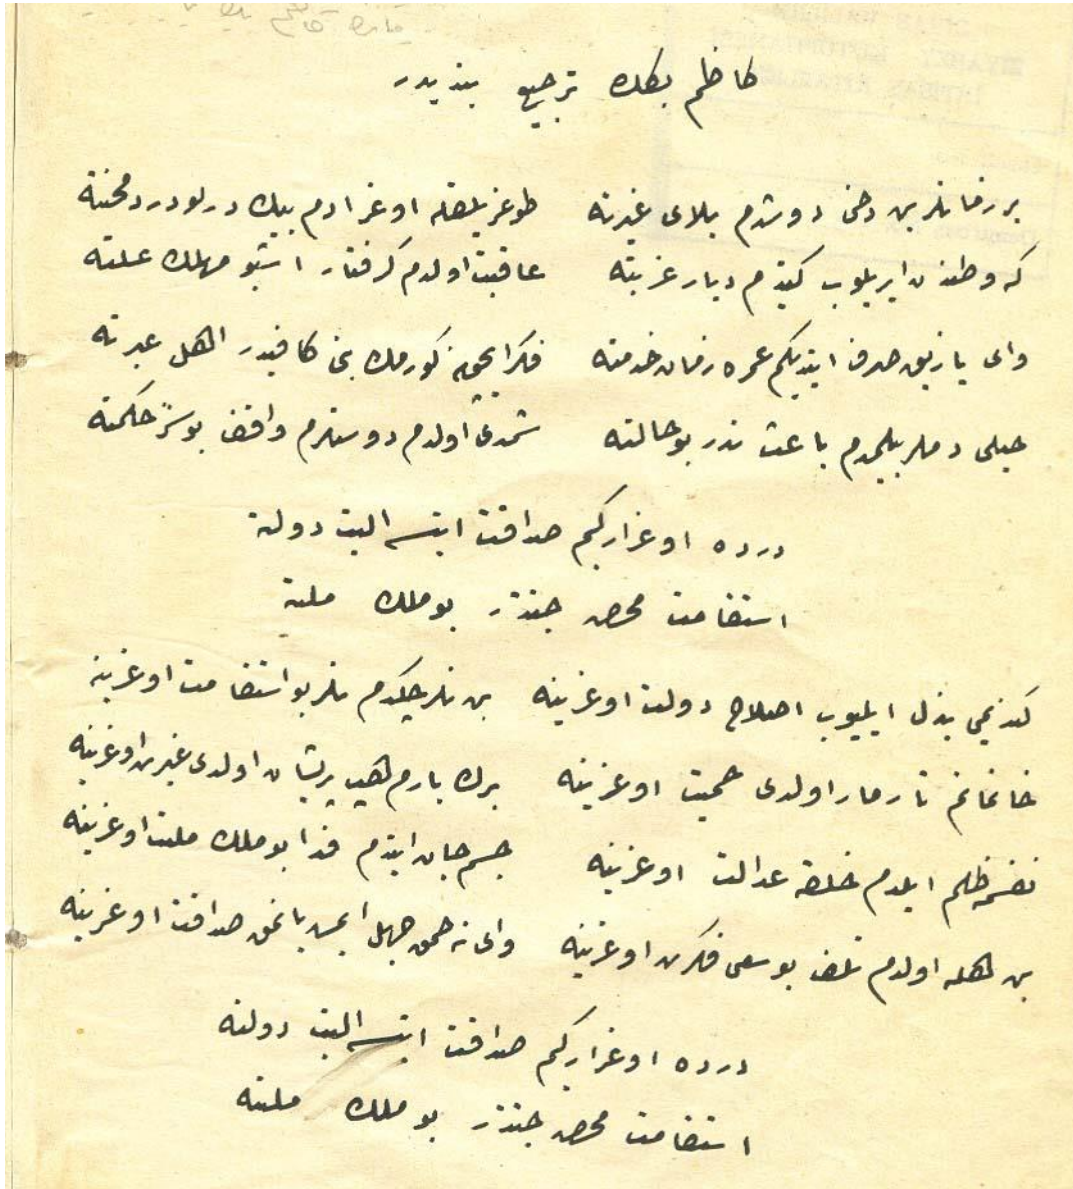 كاظم بكك ترجيع بنديدر
بر زمانلر بن دخى دوشدم بلاى غيرته طوغريلقله اوغرادم بيك درلو درد محنته
كه وطندن ايريلوب كيتدم ديار غربته عاقبت اولدم گرفتار اشبو مهلك علته
واى يازيق صرف ايتديكم عمره زمان خدمته فكر ايچون كورمك بنى كافيدر اهل عبرته
خيلى دملر بيلمدم باعث ندر بو حالته شمدى اولدم دوستلرم واقف بو سر حكمته
درده اوغرار كيم صداقت ايتسه البت دولته
استقامت محض جنتدر بو ملك ملته
كنديمى بذل ايليوب اصلاح دولت اوغرينه بن نلر چكدم نلر بو استقامت اوغرينه
خانمانم تارمار اولدى حميت اوغرينه برك بارم هپ پريشان اولدى غيرت اوغرينه
نفسمه ظلم ايلدم خلقه عدالت اوغرينه جسم جان ايتدم فدا بو ملك ملت اوغرينه
بن هله اولدم تلف بو سعى فكرت اوغرينه واى نه حمق جهل ايمش يانمق صداقت اوغرينه
درده اوغرار كيم صداقت ايتسه البت دولته
استقامت محض جنتدر بو ملك ملته